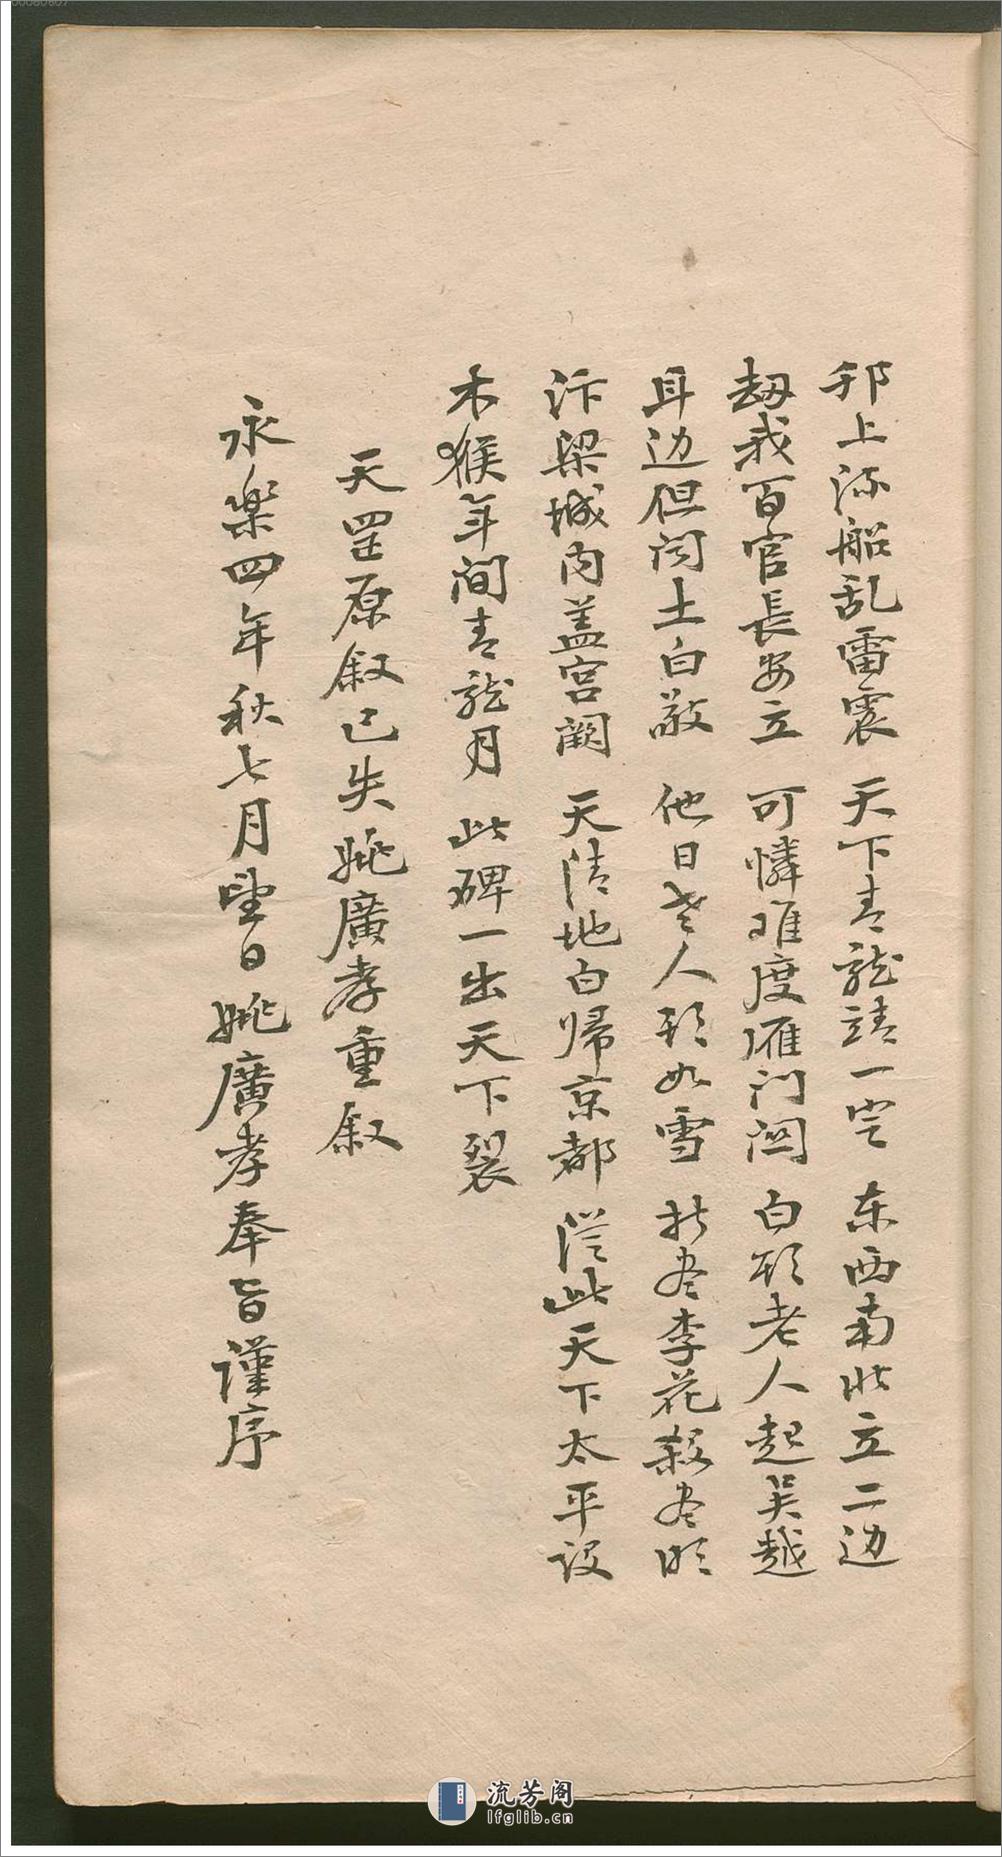 邗上流船乱雷震　天下青龍請一空　东西南北立二边
劫我百官長安立　可憐难度雁门関　白头老人起吴越
耳边但闻土白敲　他日老人头如雪　折尽李花殺尽明
汴梁城内盖宫阙　天清地白帰京都　従此天下太平设
木猴年间青龍月　此碑一出天下裂
天罡原叙已失姚廣孝重叙
永楽四年秋七月望日姚廣孝奉旨謹序
流芳阁
lfglib.cn